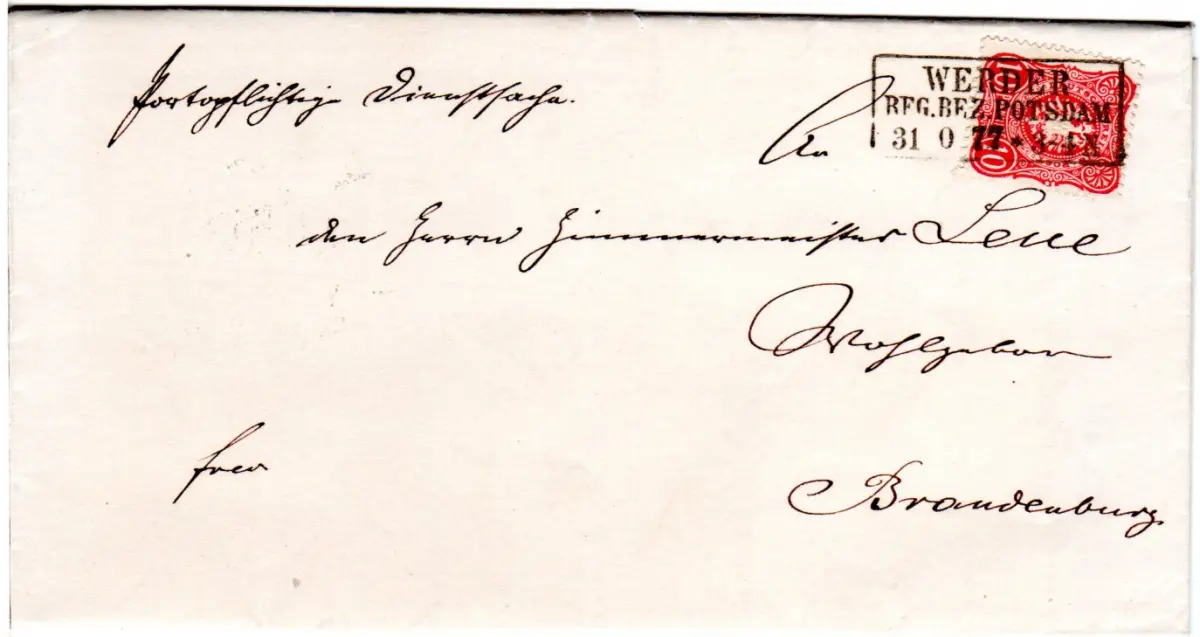 Portopflichtige Dienstsache.
WERDER
REG.BEZ.POTSDAM
31 0 77 * 3-4 N
10
10
An
den Herrn Zimmermeister Lene
Wohlgeboren
frei
Brandenburg